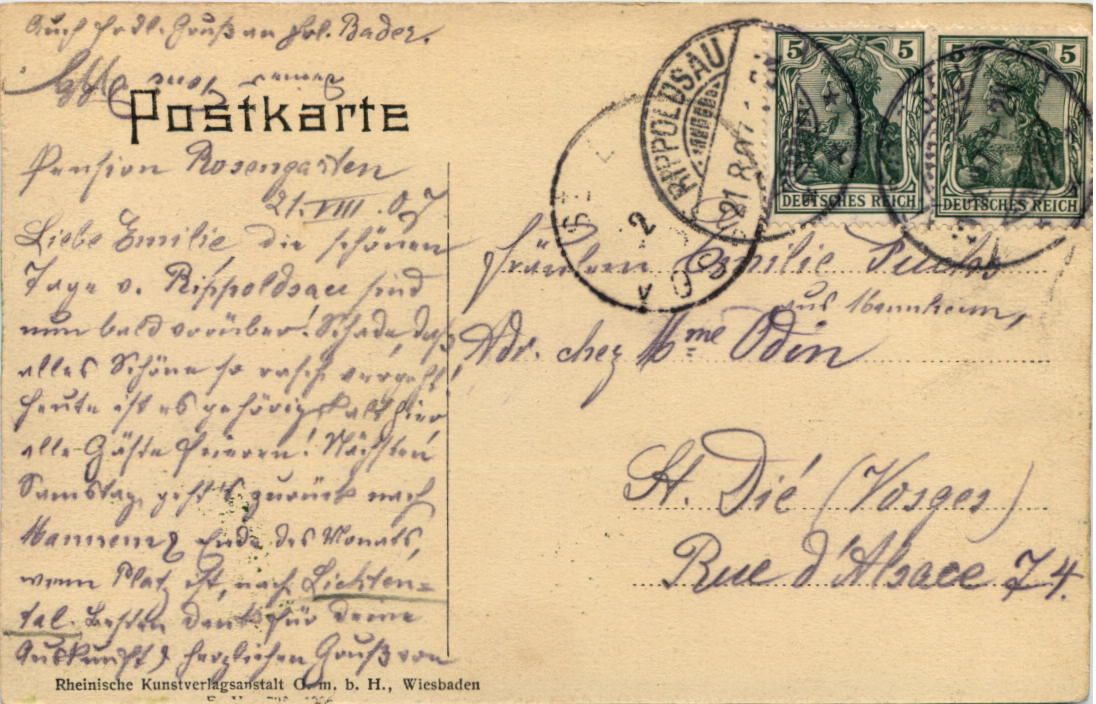 Auch frdl. Gruß an Frl. Bader.
Postkarte
Pension Rosengarten
21. VIII. 07
Liebe Emilie die schönen
Tage v. Rippoldsau sind
nun bald vorüber! Schade, daß
alles Schöne so rasch vergeht!
Heute ist es gehörig kalt hier
alle Gäste frieren! Nächsten
Samstag geht's zurück nach
Ende des Monats,
wenn Platz ist, nach Lichten=
tal. Besten Dank für deine
Auskunft & herzlichen Gruß von
Rheinische Kunstverlagsanstalt G. m. b. H., Wiesbaden
RIPPOLDSAU
21.8.07
5 5
DEUTSCHES REICH
5 5
DEUTSCHES REICH
Fräulein Emilie Fuchs
aus Mannheim,
Adr. chez Mme Odin
St. Dié (Vosges)
Rue d'Alsace 74.